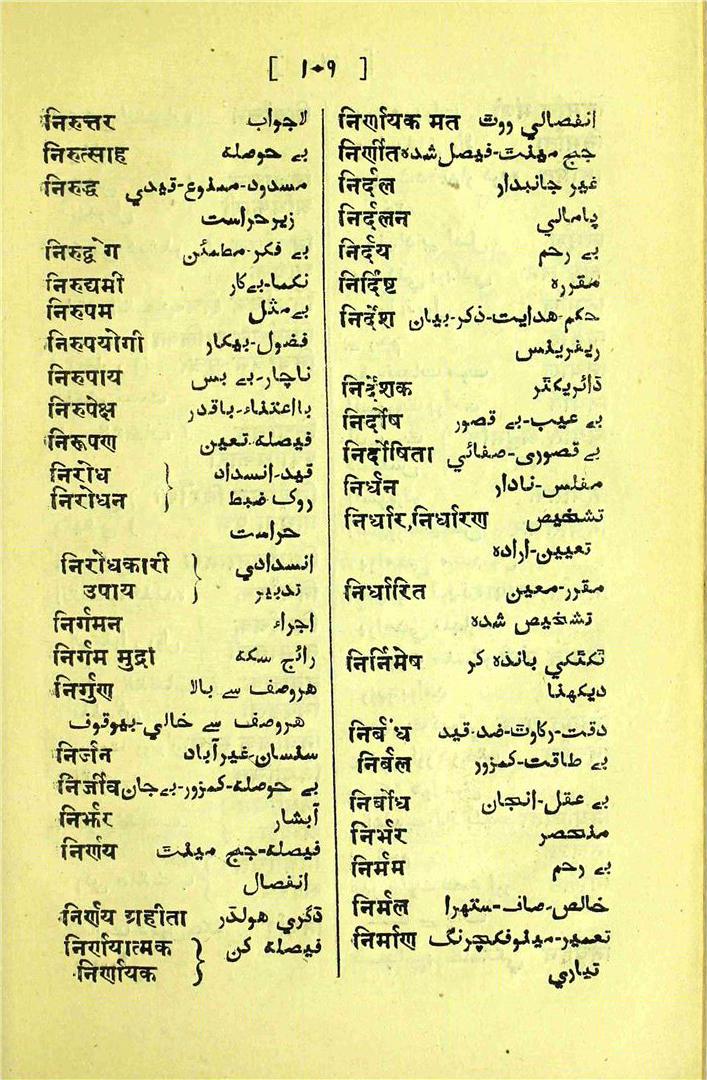 [ ١٠٩ ]
निरुत्तर لاجواب
निरुत्साह بے حوصلہ
निरुद्ध مسدود-ممنوع-قیدی
زیرحراست
निरुद्वेग بے فکر-مطمئن
निरुद्यमी نکما-بےکار
निरुपम بےمثل
निरुपयोगी فضول-بیکار
निरुपाय ناچار-بے بس
निरुपेक्ष بااعتناء-باقدر
निरूपण فیصلہ-تعین
निरोध } قید-انسداد
निरोधन } روک-ضبط
حراست
निरोधकारी } انسدادی
उपाय } تدبیر
निर्गमन اجراء
निर्गम मुद्रा رائج سکہ
निर्गुण هروصف سے بالا
هروصف سے خالی-بیوقوف
निर्जन سنسان-غیرآباد
निर्जीव بے حوصلہ-کمزور-بےجان
निर्झर آبشار
निर्णय فیصلہ-جج مینٹ
انفصال
निर्णय ग्रहीता ڈگری هولڈر
निर्णयात्मक } فیصلہ کن
निर्णायक }
निर्णायक मत انفصالی ووٹ
निर्णीत جج مینٹ-فیصل شدہ
निर्दल غیر جانبدار
निर्दलन پامالی
निर्दय بے رحم
निर्दिष्ट مقررہ
निर्देश حکم-هدایت-ذکر-بیان
ریفرینس
निर्देशक ڈائریکٹر
निर्दोष بے عیب-بے قصور
निर्दोषिता بےقصوری-صفائی
निर्धन مفلس-نادار
निर्धार,निर्धारण تشخیص
تعیین-ارادہ
निर्धारित مقرر-معین
تشخیص شدہ
निर्निमेष ٹکٹکی باندہ کر
دیکھنا
निर्बंध دقت-رکاوٹ-ضد-قید
निर्बल بے طاقت-کمزور
निर्बोध بے عقل-انجان
निर्भर منحصر
निर्मम بے رحم
निर्मल خالص-صاف-ستھرا
निर्माण تعمیر-مینوفکچرنگ
تیاری